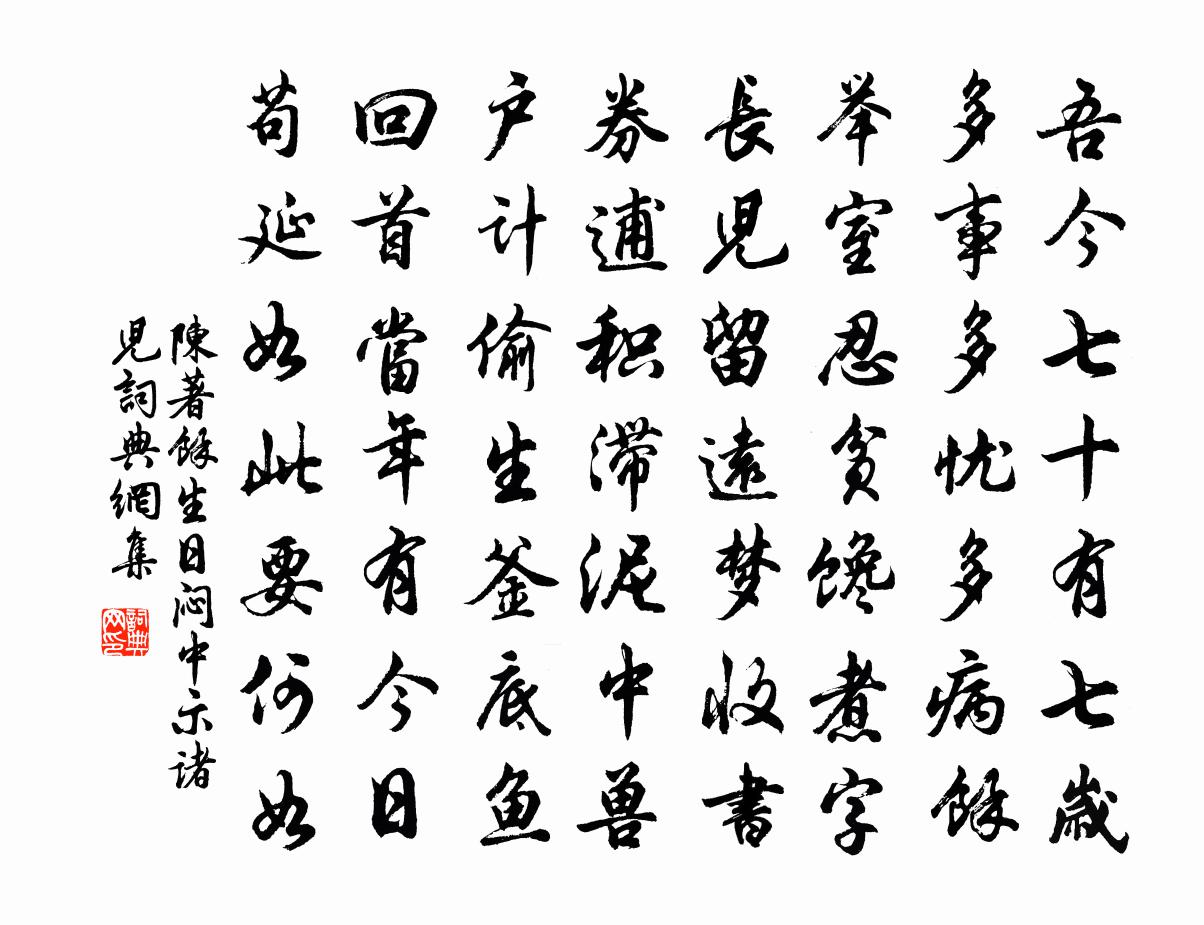 吾今七十有七歲
多事多忧多病餘
举室忍贫馋煮字
長児留遠梦收書
券逋积滞泥中兽
户计偷生釜底鱼
回首當年有今日
苟延如此要何如
陳著餘生日闷中示诸
児詞典網集
詞典网印